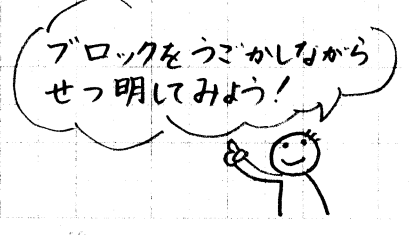 ブロックをうごかしながら
せつ明してみよう！